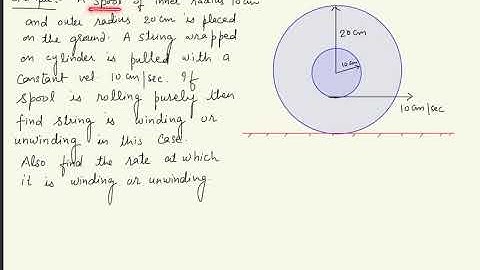 A spool of inner radius 10cm
and outer radius 20cm is placed
on the ground. A string wrapped
on cylinder is pulled with a
constant vel 10 cm/sec. If
spool is rolling purely then
find string is winding or
unwinding in this case.
Also find the rate at which
it is winding or unwinding
20cm
10cm
10cm/sec